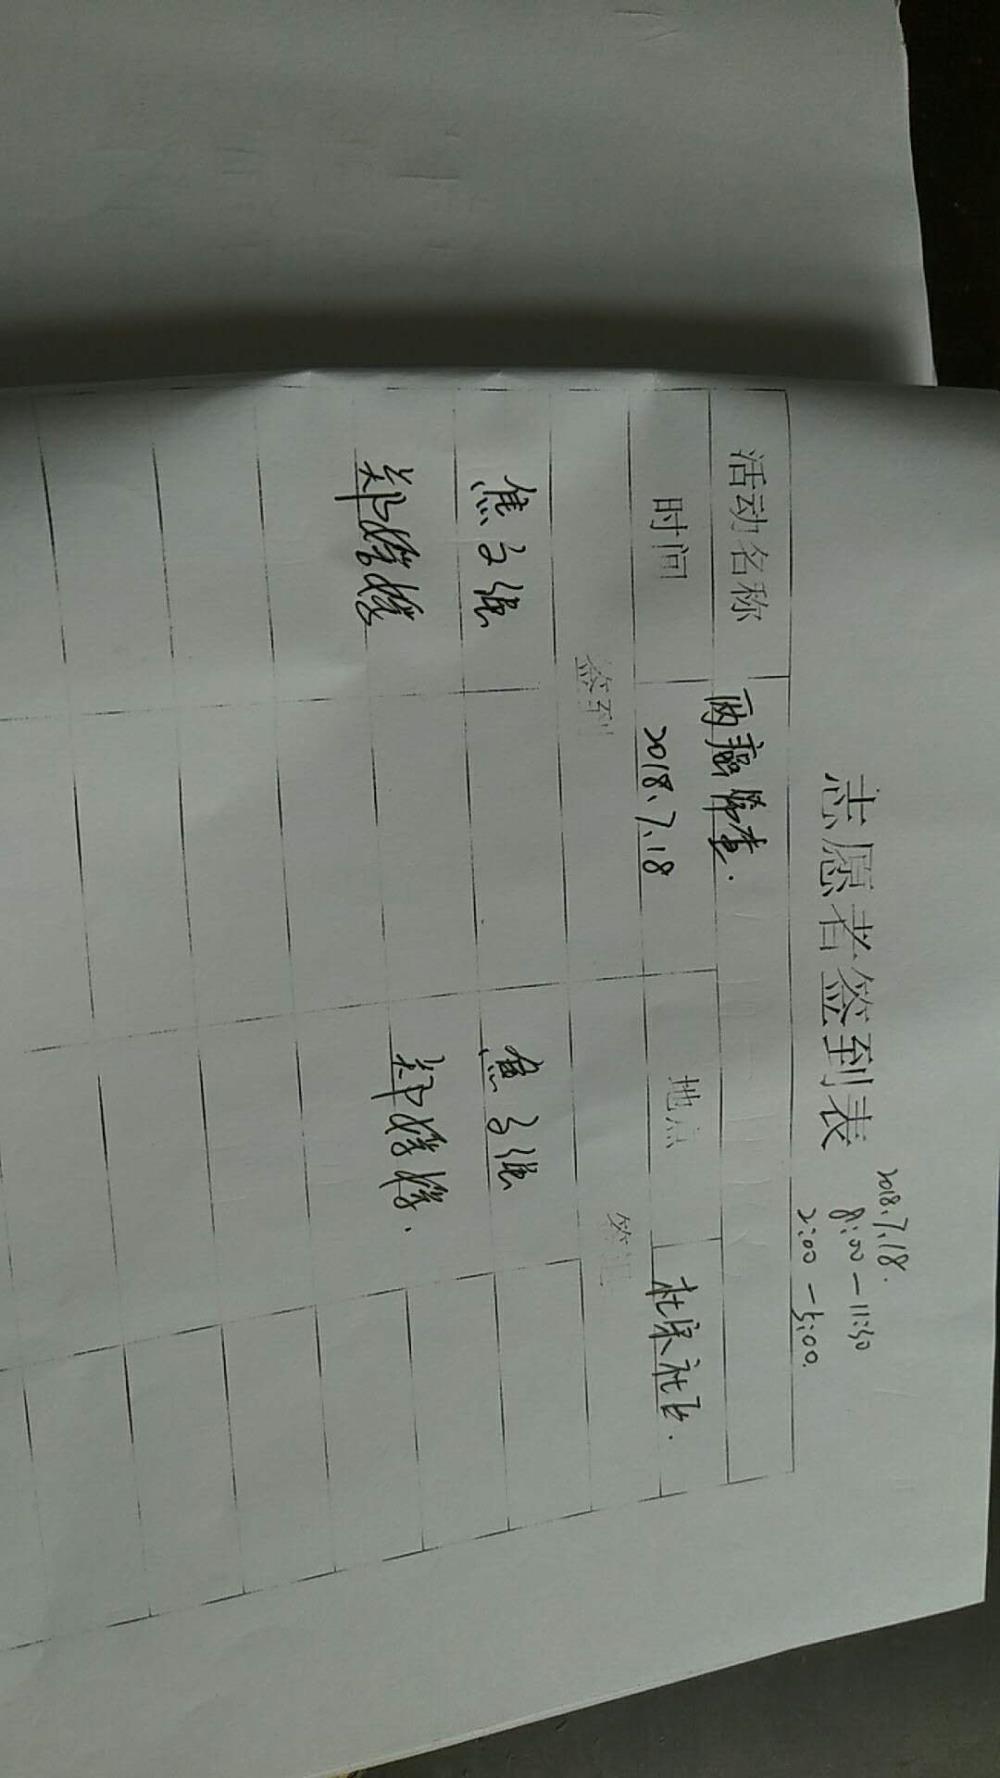 志愿者签到表
2018.7.18.
8:00—11:30
2:00—5:00.
活动名称 两癌筛查.
时间 2018.7.18 地点 杜宋社区.
签到 签退
焦子强 焦子强
郑婷婷 郑婷婷.